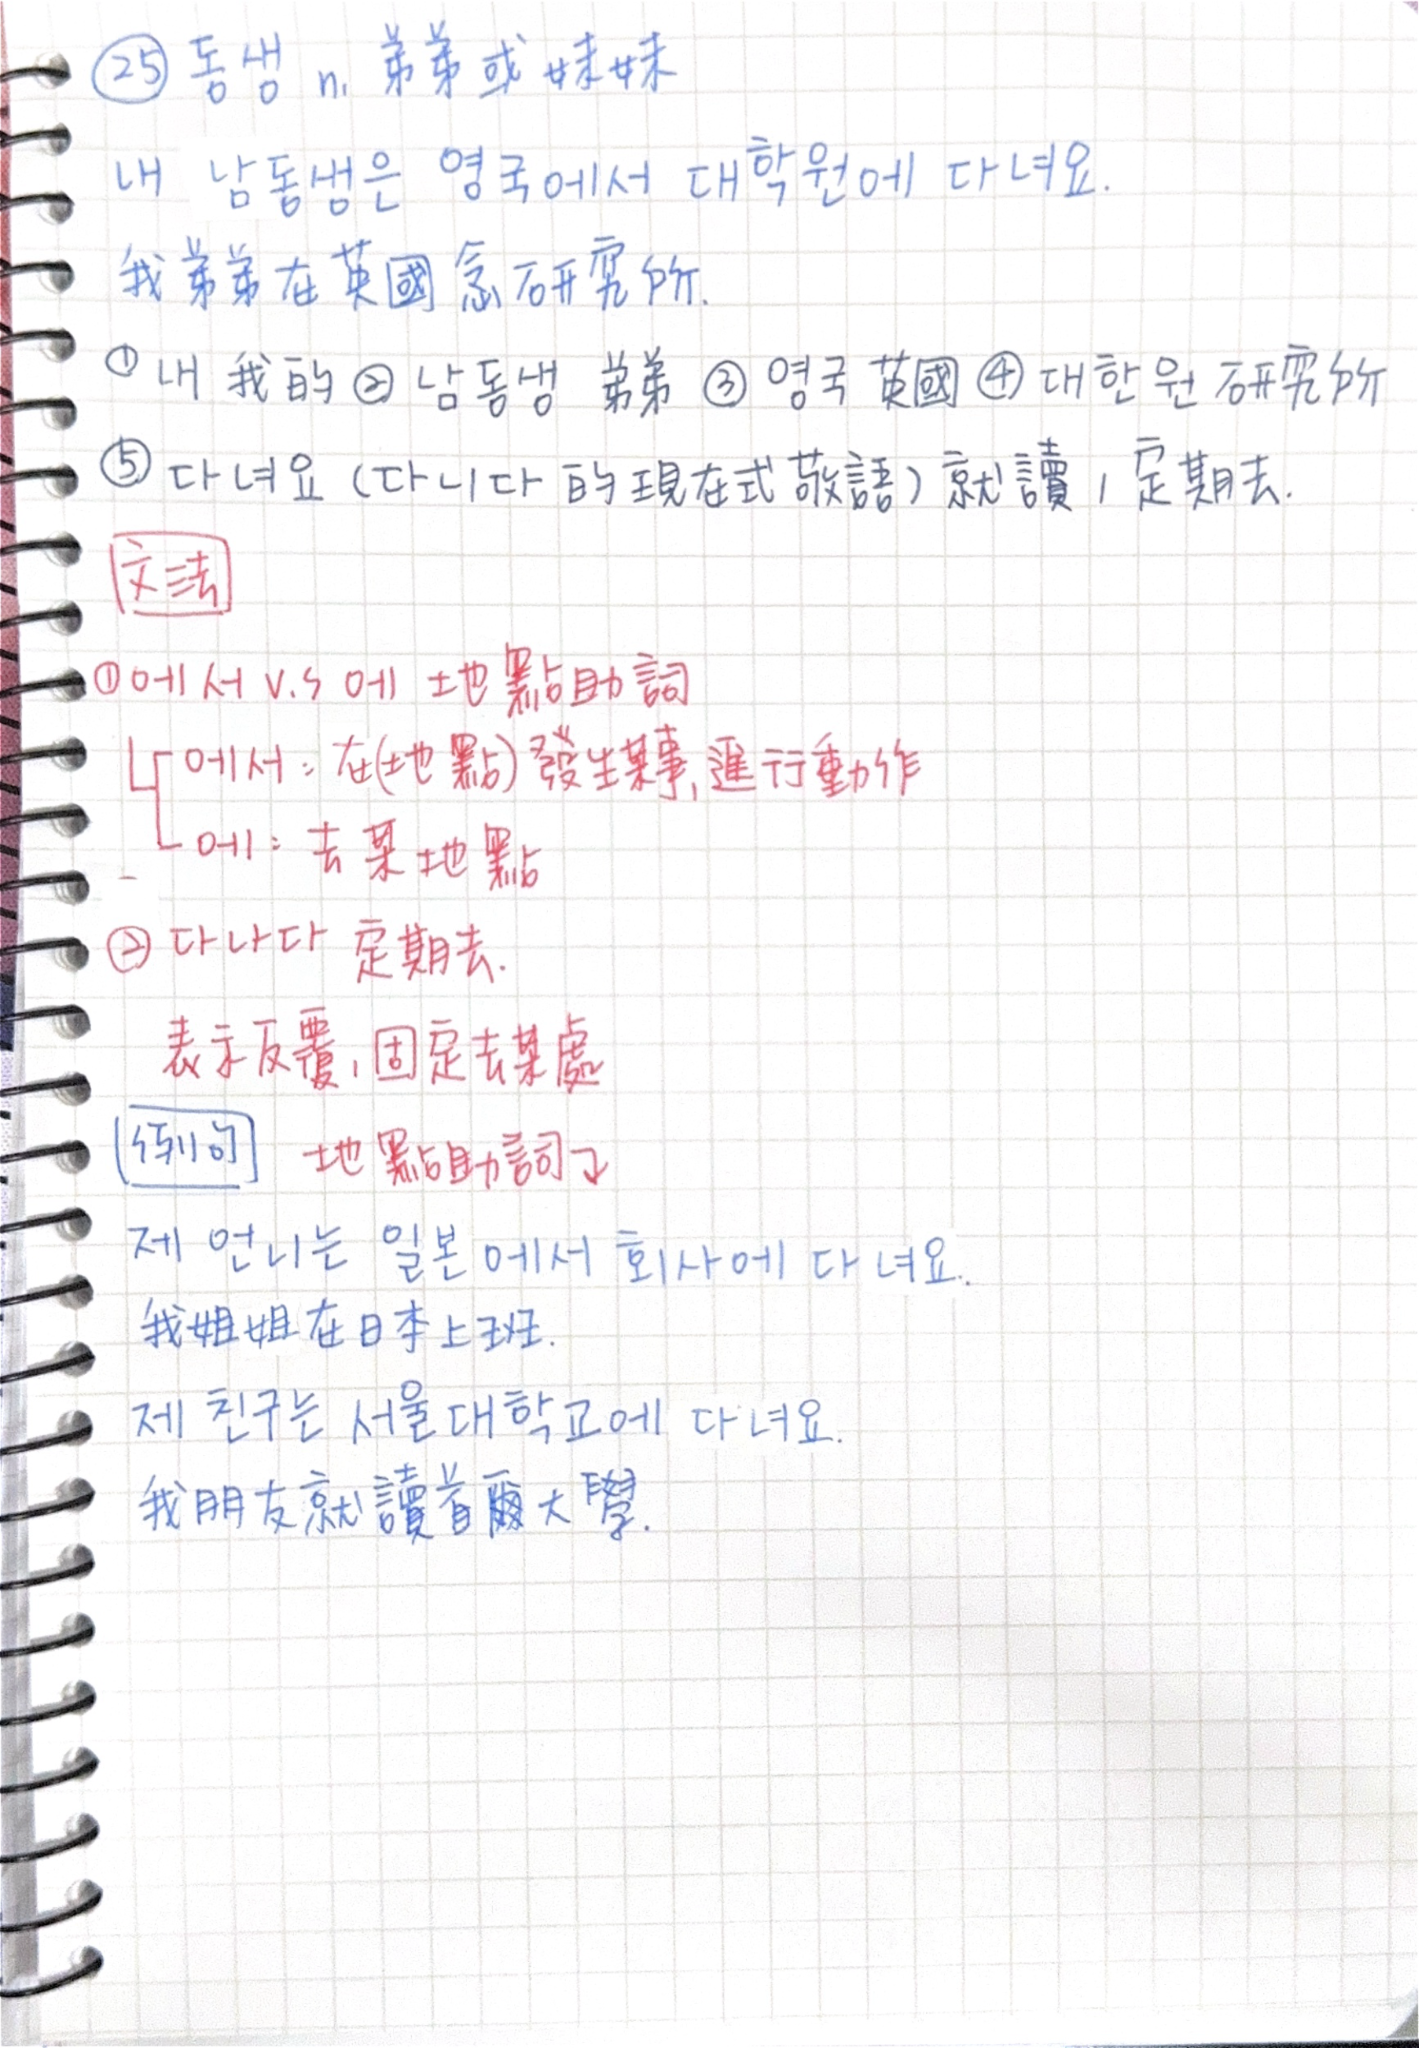 ㉕ 동생 n. 弟弟或妹妹
내 남동생은 영국에서 대학원에 다녀요.
我弟弟在英國念研究所.
① 내 我的 ② 남동생 弟弟 ③ 영국 英國 ④ 대한원 研究所
⑤ 다녀요 (다니다 的現在式敬語) 就讀, 定期去.
文法
① 에서 v.s 에 地點助詞
에서: 在(地點)發生某事, 進行動作
에: 去某地點
② 다나다 定期去.
表示反覆, 固定去某處
例句 地點助詞
제 언니는 일본에서 회사에 다녀요.
我姐姐在日本上班.
제 친구는 서울대학교에 다녀요.
我朋友就讀首爾大學.